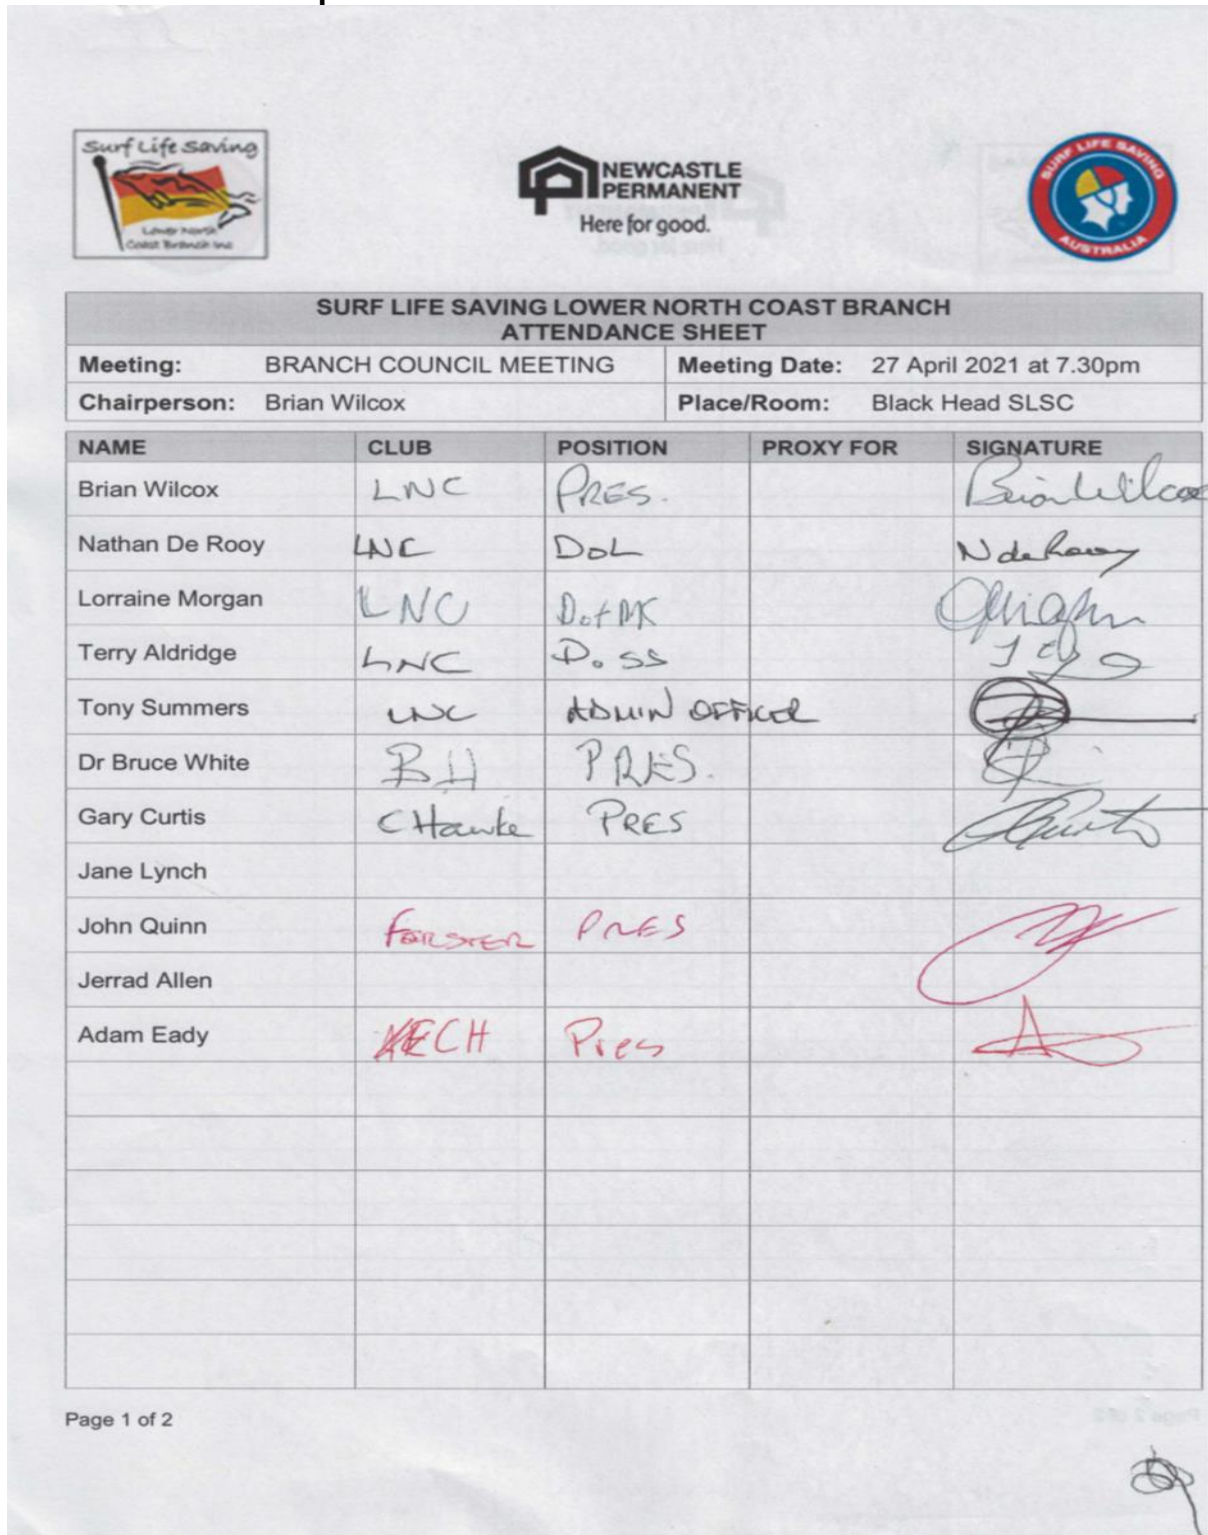 Surf Life Saving
Lower North
Coast Branch Inc
NEWCASTLE
PERMANENT
Here for good.
SURF LIFE SAVING
AUSTRALIA
SURF LIFE SAVING LOWER NORTH COAST BRANCH
ATTENDANCE SHEET
Meeting: BRANCH COUNCIL MEETING Meeting Date: 27 April 2021 at 7.30pm
Chairperson: Brian Wilcox Place/Room: Black Head SLSC
NAME CLUB POSITION PROXY FOR SIGNATURE
Brian Wilcox LNC PRES. Brian Wilcox
Nathan De Rooy LNC DOL N de Rooy
Lorraine Morgan LNC
Terry Aldridge LNC D. SS
Tony Summers LNC ADMIN OFFICER
Dr Bruce White BH PRES.
Gary Curtis C Hawke PRES
Jane Lynch
John Quinn FORSTER PRES
Jerrad Allen
Adam Eady ECH Pres
Page 1 of 2